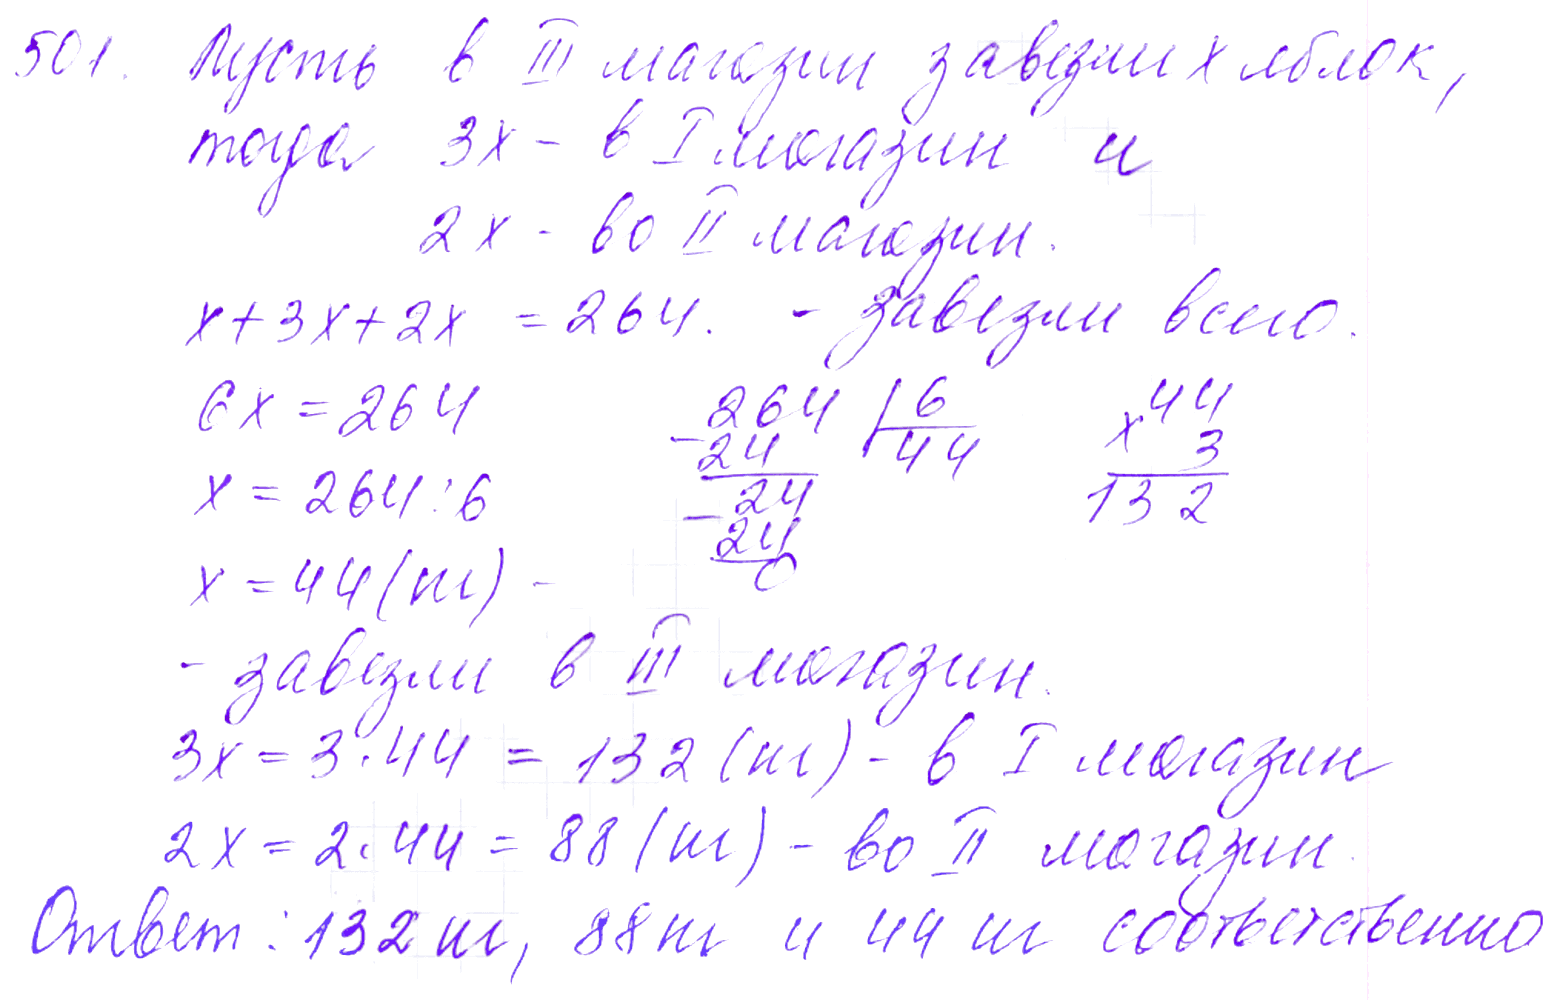 501. Пусть в III магазин завезли x яблок,
тогда 3x - в I магазин и
2x - во II магазин.
x+3x+2x = 264. - завезли всего.
6x = 264
264 | 6
44
x 3
- 24
44
132
x = 264:6
- 24
24
0
x = 44 (кг) -
- завезли в III магазин.
3x = 3·44 = 132 (кг) - в I магазин
2x = 2·44 = 88 (кг) - во II магазин.
Ответ: 132 кг, 88 кг и 44 кг соответственно